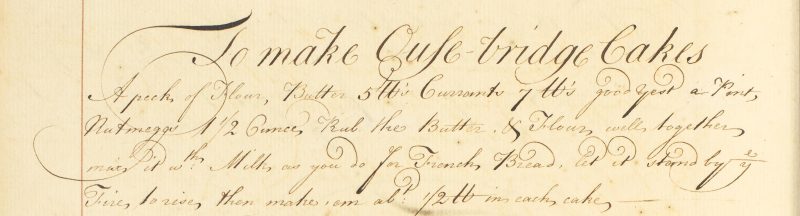 To make Ouse-bridge Cakes
A peck of Flour, Butter 5 ℔s Currants 7 ℔s good yest a Pint,
Nutmeggs 1 1/2 Ounce, Rub the Butter & Flour well together
mix it wth. Milk as you do for French Bread, let it stand by ye
Fire, to rise, then make 'em abt. 1/2 ℔ in each cake —